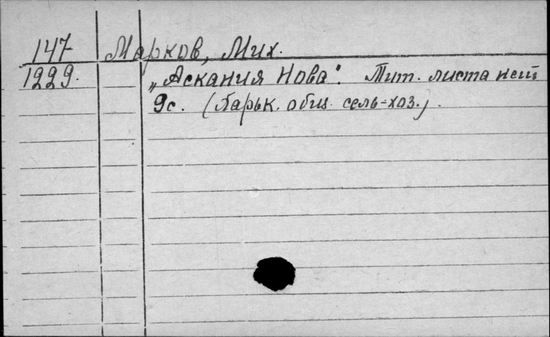 147 Марков, Мих.
1229. „Аскания Нова“. Тит. листа нет
9с. (Харьк. общ. сель-хоз.).